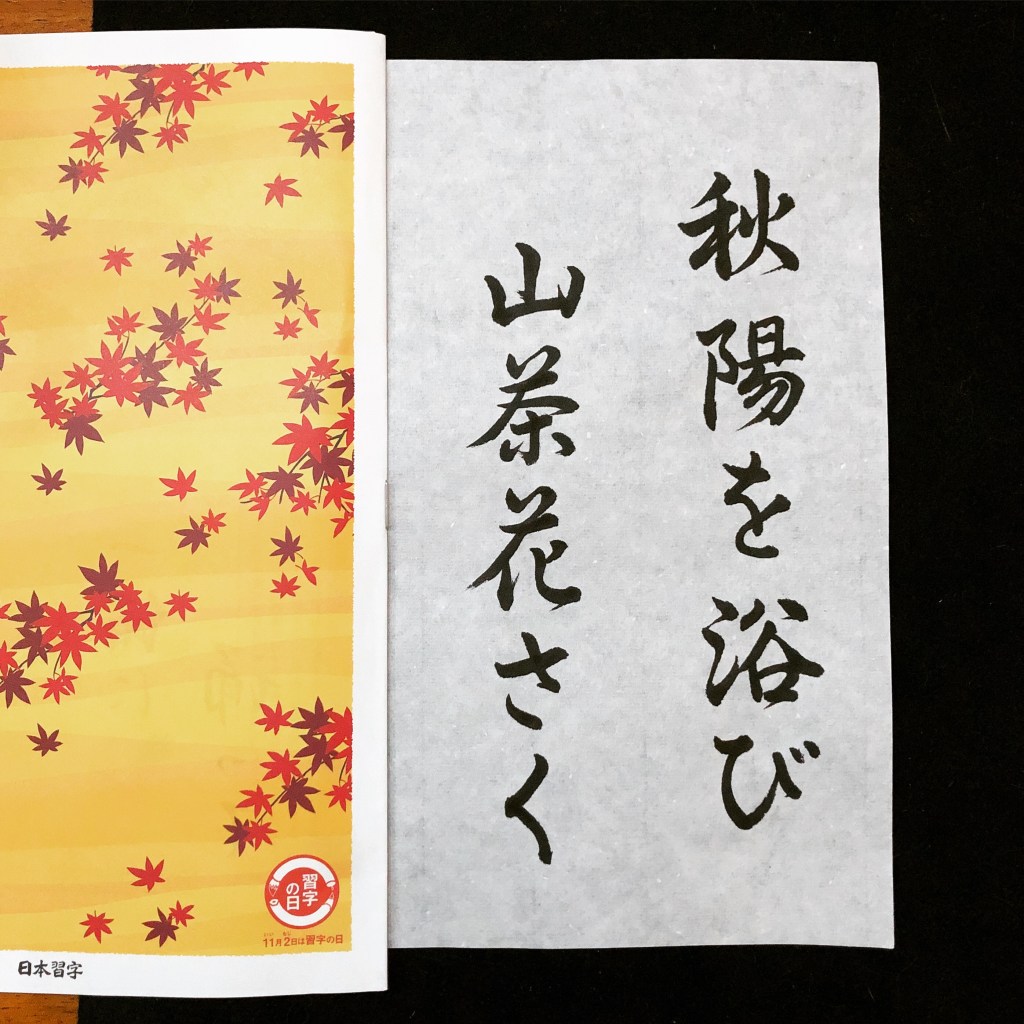 秋陽を浴び
山茶花さく
習字
の日
いい もじ
11月2日は習字の日
日本習字